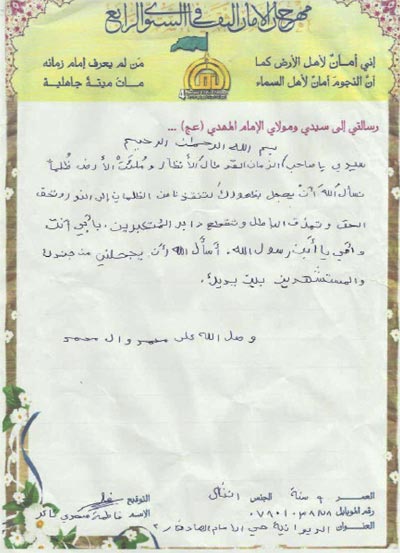 مهرجان الأمان الثقافي السنوي الرابع
إني أمانٌ لأهل الأرض كما
أنّ النجوم أمانٌ لأهل السماء
مَن لم يعرف إمام زمانه
ماتَ ميتةً جاهلية
رسالتي إلى سيدي ومولاي الإمام المهدي (عج) ...
بسم الله الرحمن الرحيم
سيدي يا صاحب الزمان لقد طال الأنتظار و ملئت الأرض ظلماً
نسأل الله أن يعجل بظهورك لتنقذنا من الظلمات إلى النور وتحق
الحق و تهدف الباطل وتقطع دابر المتكبرين، بأبي أنت
و أمي يا أبن رسول الله. أسأل الله أن يجعلني من جنودك
والمستشهدين بين يديك.
و صل الله على محمد وال محمد
العمر ٩ سنة الجنس انثى التوقيع
رقم الموبايل الاسم فاطمة
العنوان الديوانية حي الامام الصادق ٢